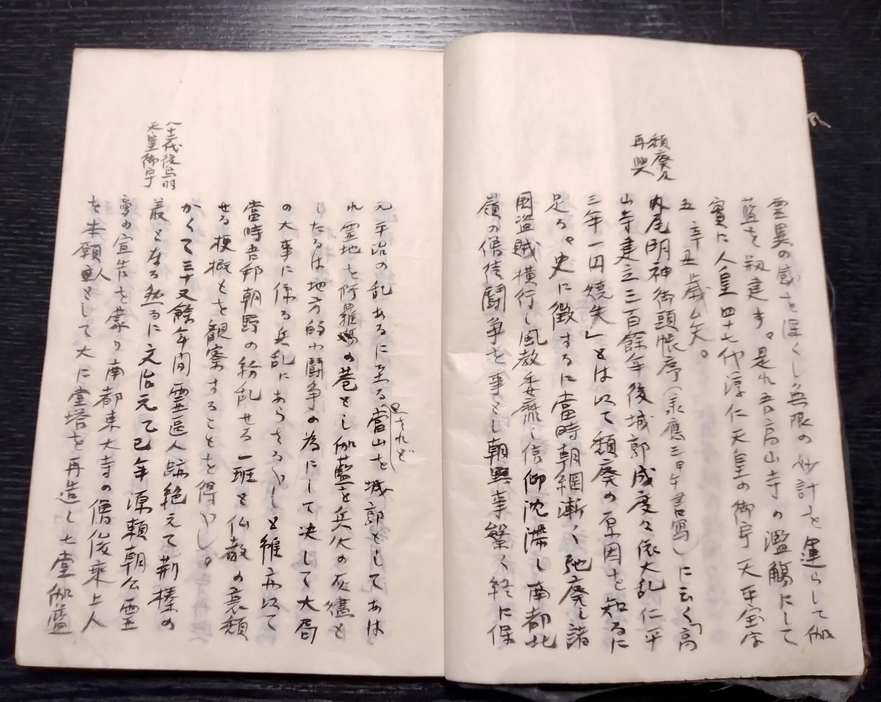 霊異の感を深くし無限の妙計を運らして伽
藍を創建す。是れ吾高山寺の濫觴にして
實に人皇四十七代淳仁天皇の御宇天平宝字
五辛丑歳ム矣。
頽廃及
再興
丸尾明神御頭帳序(承應三甲午書寫)に云く「高
山寺建立三百餘年後城郭成度々依大乱仁平
三年一囙焼失」とは以て頽廃の原因を知るに
足る。史に徴するに當時朝綱漸く弛廃し諸
國盗賊横行し風教委靡し信仰沈滞し南都北
嶺の僧徒闘争を事とし朝興事繁く終に保
元平治の乱あるに至る
當山を城郭としてあは
れ霊地を阿羅場の巷とし伽藍を兵火の灰燼と
したるは地方的小闘争の為にして决して大局
の大事に係る兵乱にあらさるへしと雖亦以て
當時吾邦朝野の紛乱せる一班と仏教の衰頽
せる梗概とを観察することを得へし。
かくて三十又餘年間霊區人跡絶えて荊榛の
八十二代後鳥羽
天皇御宇
叢となる然るに文治元乙巳年源頼朝公霊
夢の宣告を蒙り南都東大寺の僧俊乗上人
を本願主として大に堂塔を再造し七堂伽藍